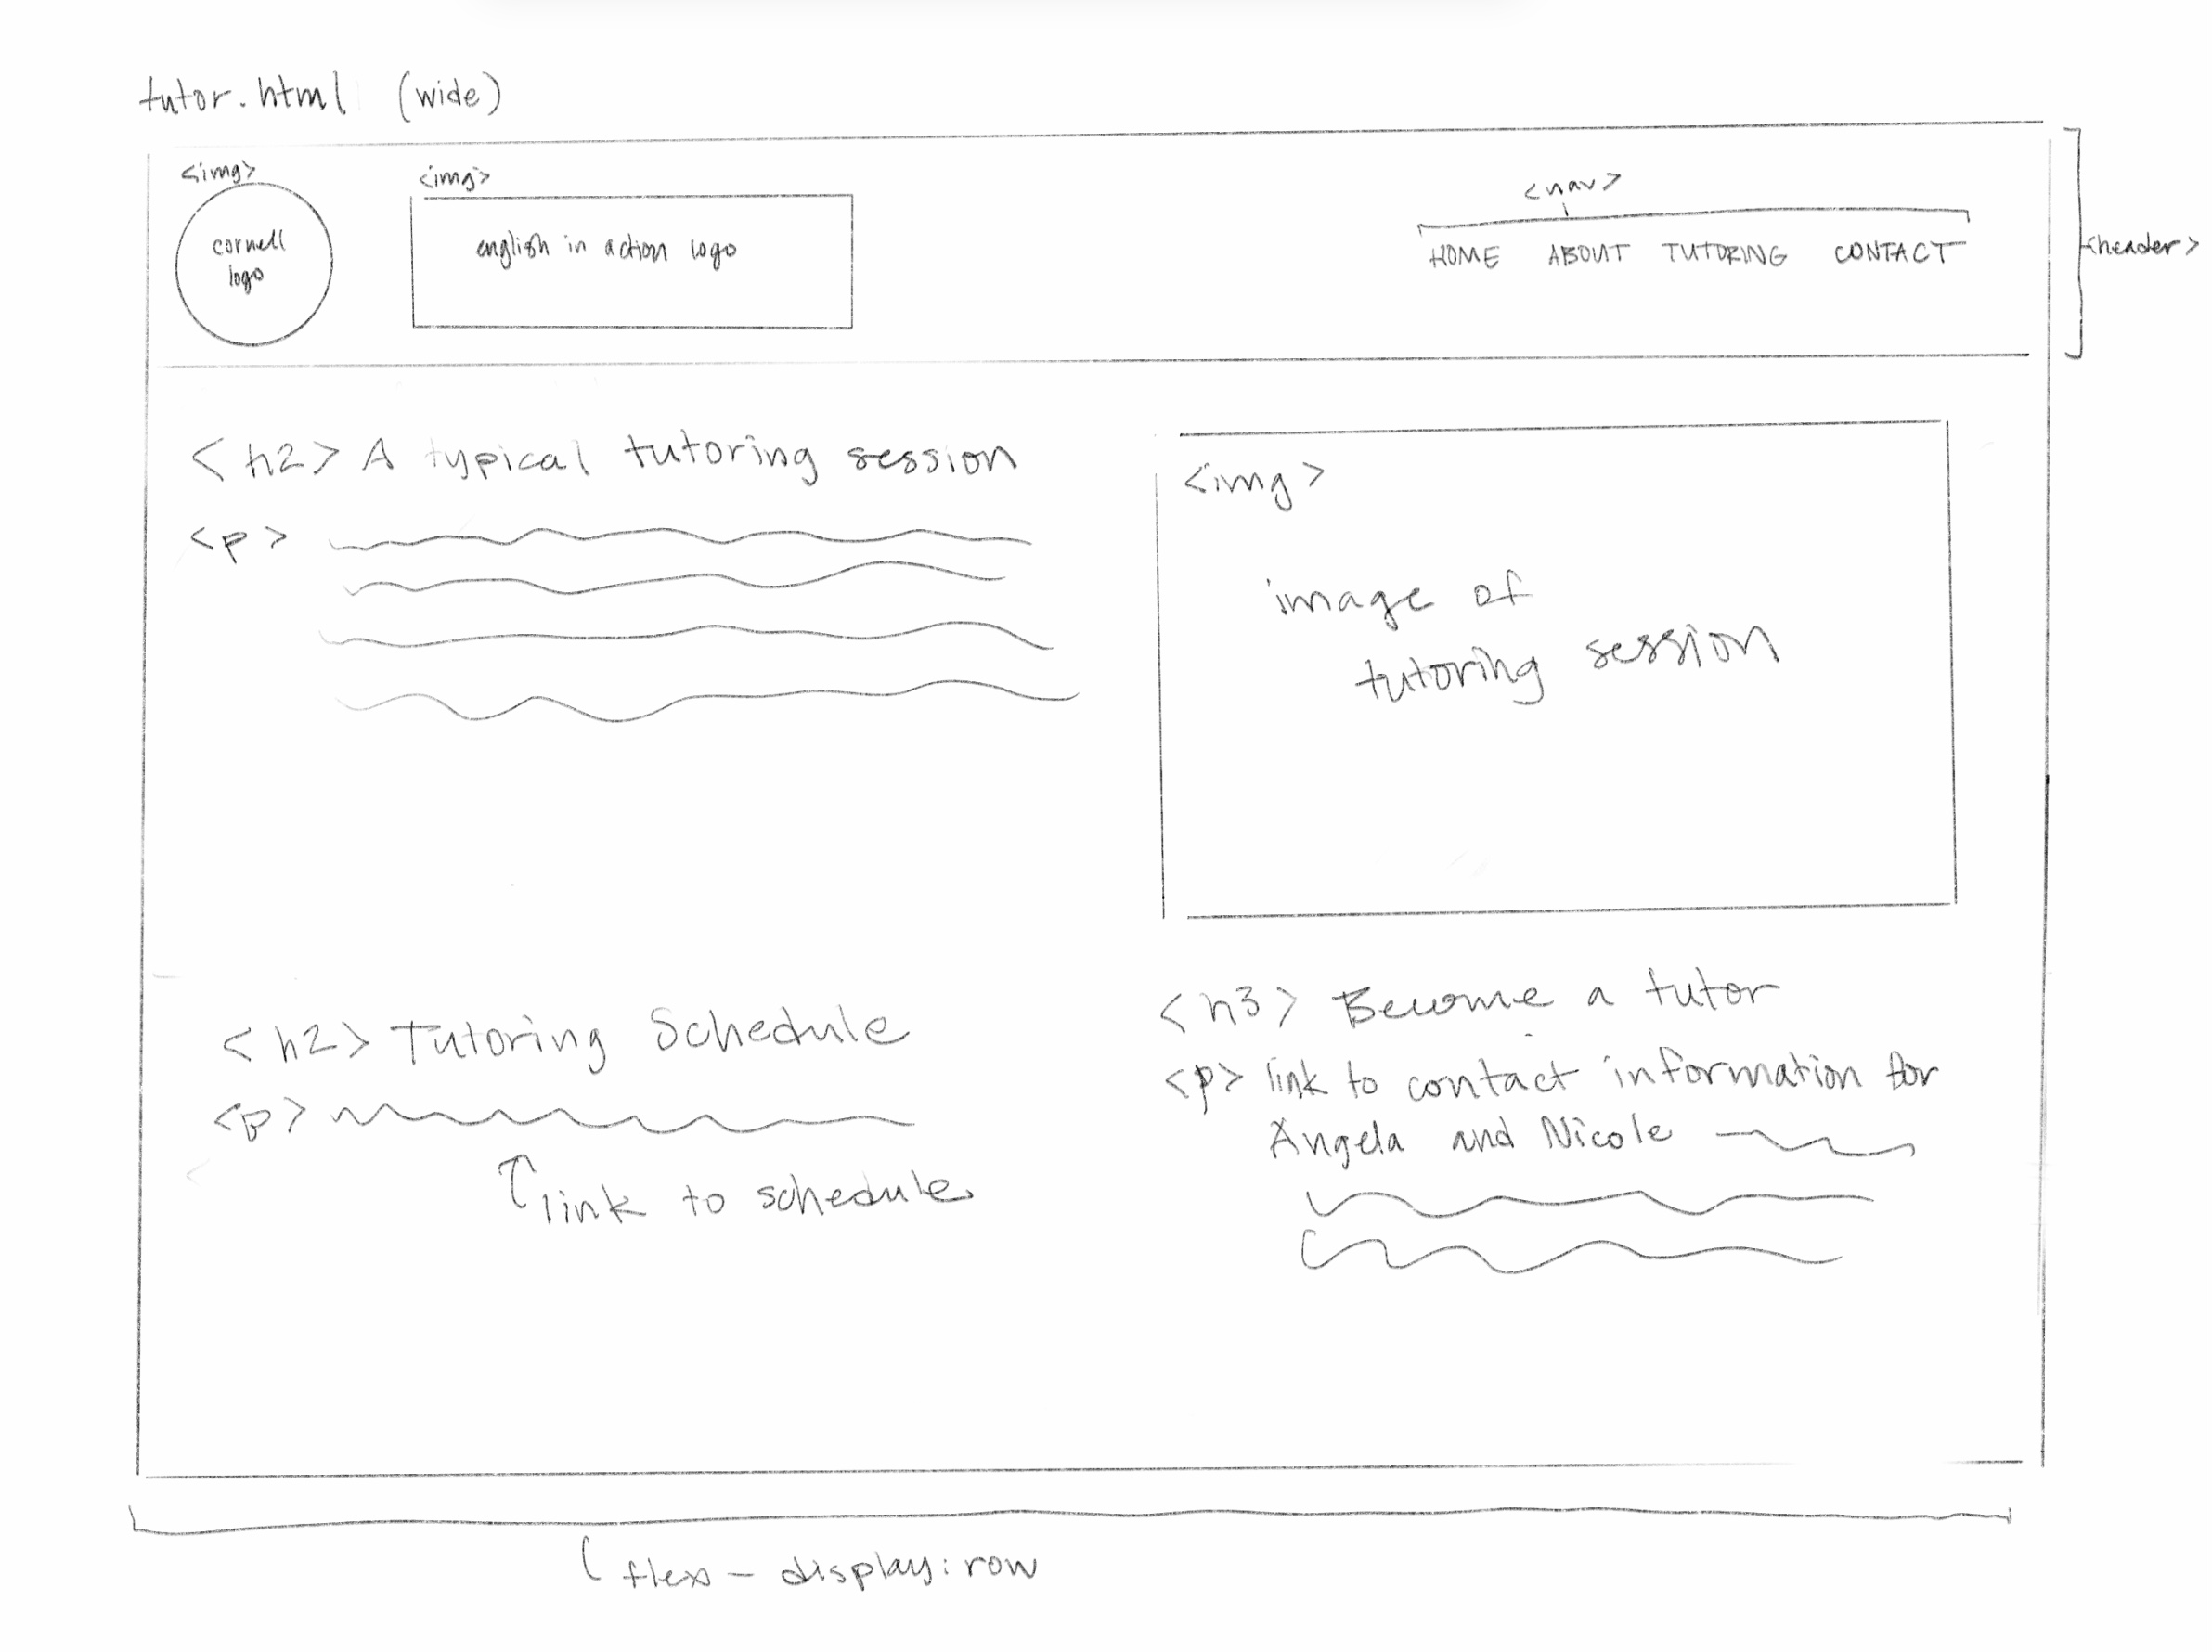 tutor.html (wide)
<img>
cornell
logo
<img>
english in action logo
<nav>
HOME ABOUT TUTORING CONTACT
<header>
<h2> A typical tutoring session
<p>
<img>
image of
tutoring session
<h2> Tutoring Schedule
<p>
link to schedule
<h3> Become a tutor
<p> link to contact information for
Angela and Nicole
flex - display: row